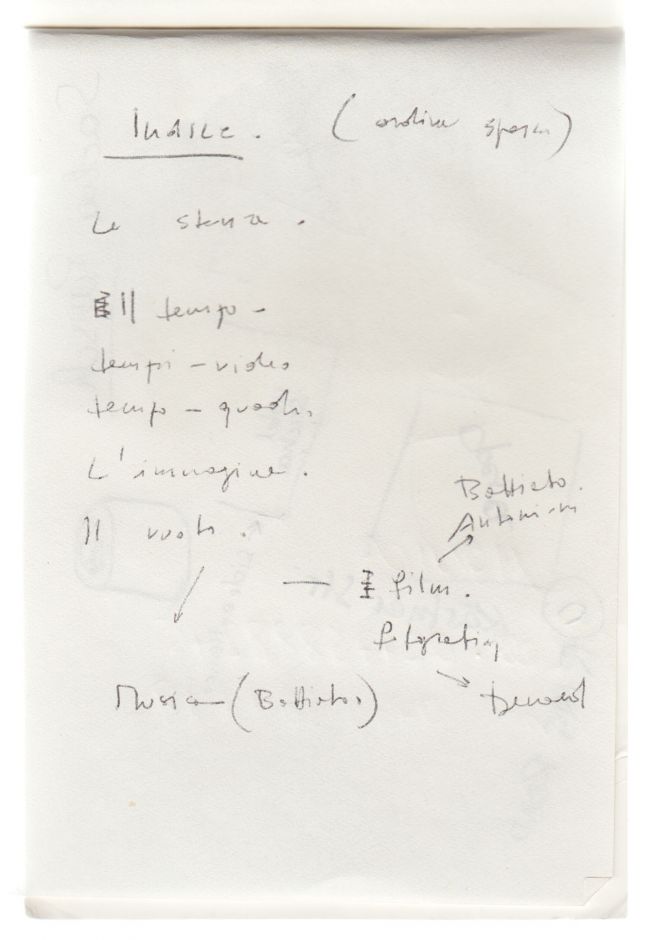 Indice. (ordine sparso)
La stanza.
Il tempo -
tempi - video
tempo - quadro
L'immagine.
Il vuoto.
Battiato.
Antonioni
— film.
fotografia
Musica (Battiato)